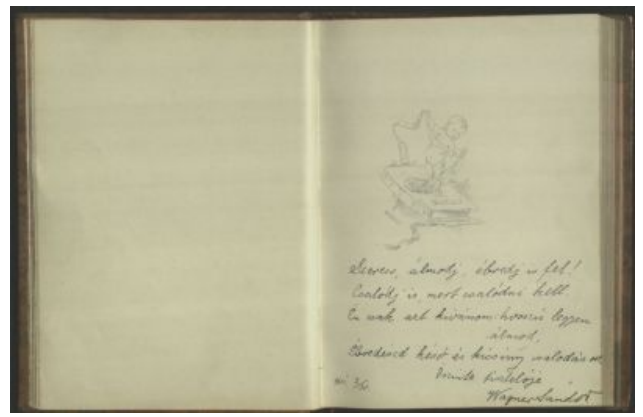 Szeress, álmodj, ébredj is fel!
Csalódj is, mert csalódni kell.
Én csak azt kivánom: hosszú legyen
álmod,
Ébredésed késő és kicsiny csalodásod.
tisztelője
Wagner Sándor